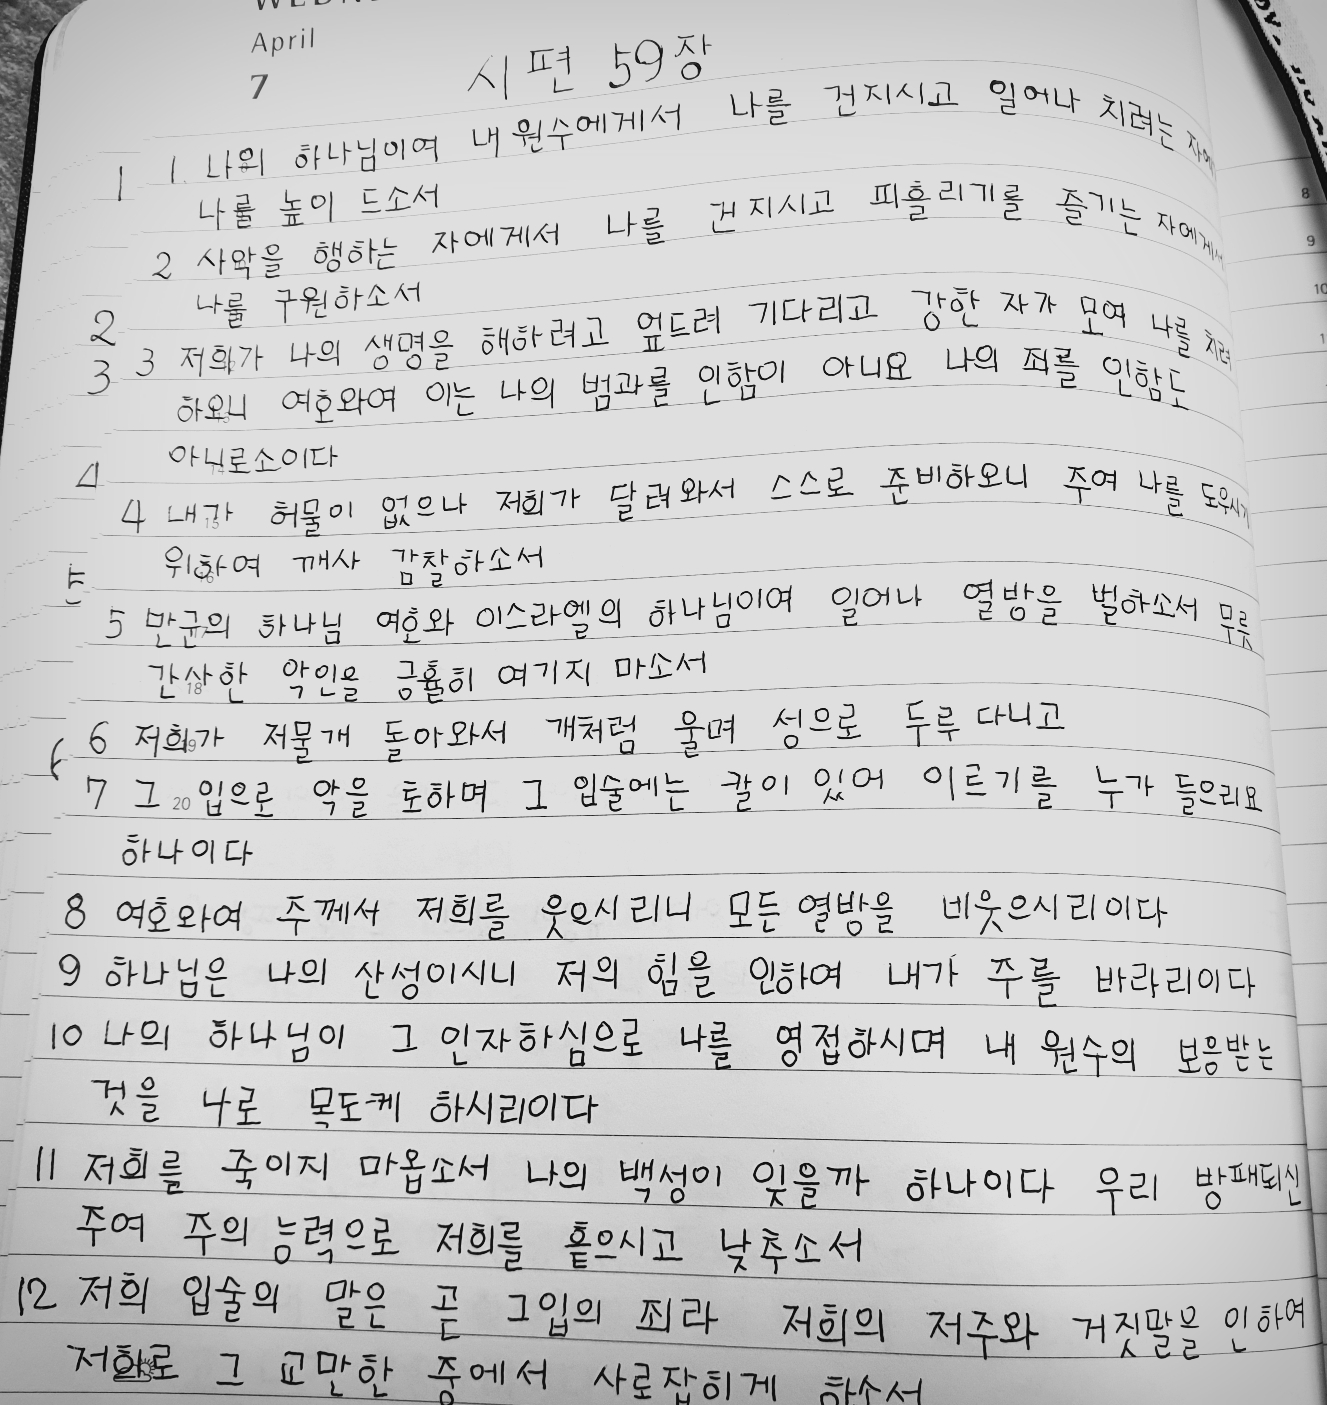 April
7
시편 59장
1 1. 나의 하나님이여 내 원수에게서 나를 건지시고 일어나 치려는 자에
나를 높이 드소서
2 사악을 행하는 자에게서 나를 건지시고 피흘리기를 즐기는 자에게서
나를 구원하소서
2
3 3 저희가 나의 생명을 해하려고 엎드려 기다리고 강한 자가 모여 나를 치려
하오니 여호와여 이는 나의 범과를 인함이 아니요 나의 죄를 인함도
아닌로소이다
4
4 내가 허물이 없으나 저희가 달려와서 스스로 준비하오니 주여 나를 도우시기
위하여 깨사 감찰하소서
5
5 만군의 하나님 여호와 이스라엘의 하나님이여 일어나 열방을 벌하소서 무릇
간사한 악인을 긍휼히 여기지 마소서
6 6 저희가 저물개 돌아와서 개처럼 울며 성으로 두루 다니고
7 그 입으로 악을 토하며 그 입술에는 칼이 있어 이르기를 누가 들으리요
하나이다
8 여호와여 주께서 저희를 웃으시리니 모든 열방을 비웃으시리이다
9 하나님은 나의 산성이시니 저의 힘을 인하여 내가 주를 바라리이다
10 나의 하나님이 그 인자하심으로 나를 영접하시며 내 원수의 보응받는
것을 나로 목도케 하시리이다
11 저희를 죽이지 마옵소서 나의 백성이 잊을까 하나이다 우리 방패되신
주여 주의 능력으로 저희를 흩으시고 낮추소서
12 저희 입술의 말은 곧 그입의 죄라 저희의 저주와 거짓말을 인하여
저희로 그 교만한 중에서 사로잡히게 하소서